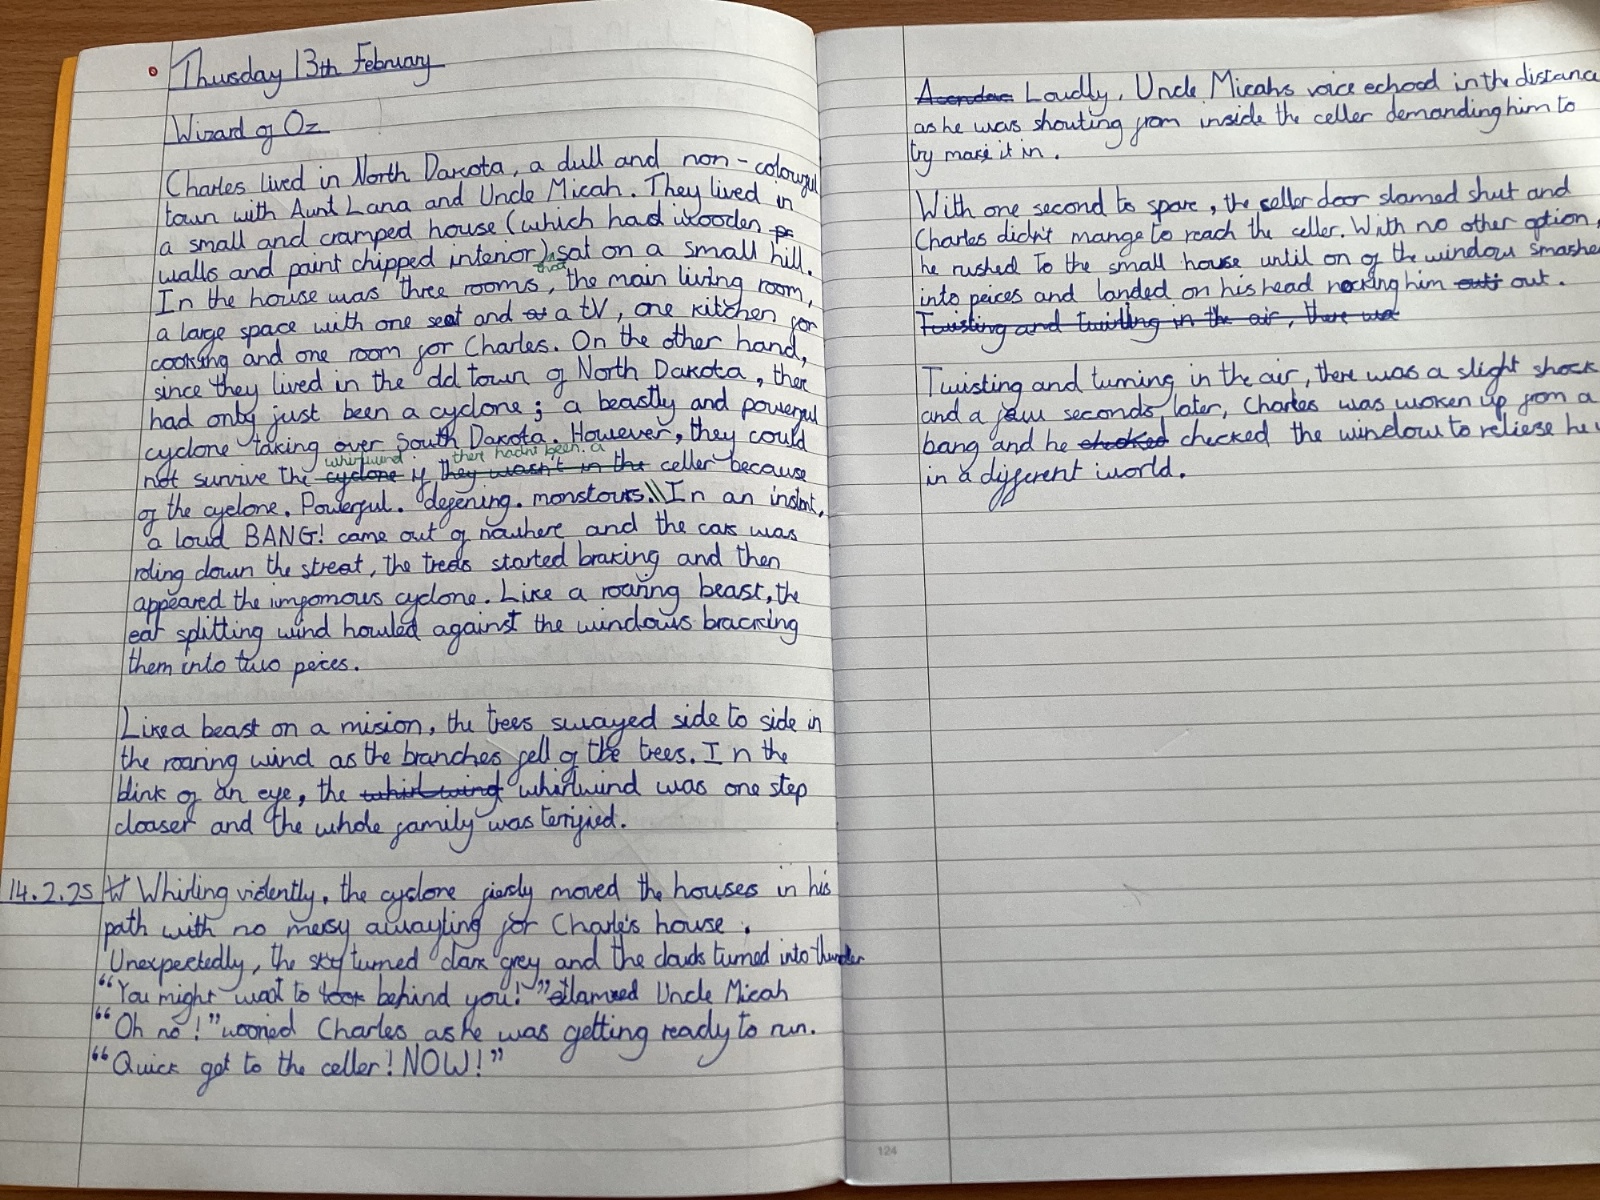 Thusday 13th February
Wizard of Oz
Charles lived in North Dakota, a dull and non-colourful
town with Aunt Lana and Uncle Micah. They lived in
a small and cramped house (which had wooden
walls and paint chipped interior) that sat on a small hill.
In the house was three rooms, the main living room,
a large space with one seat and a tV, one kitchen for
cooking and one room for Charles. On the other hand,
since they lived in the old town of North Dakota, ther
had only just been a cyclone; a beastly and powerful
cyclone taking over South Dakota. However, they could
whirlwind there hadn't been a
not survive the cyclone if they wasn't in the celler because
of the cyclone. Powerful. defening. monstours.\\In an instant,
a loud BANG! came out of nowhere and the cars was
roling down the street, the treds started braking and then
appeared the imfomous cyclone. Like a roaring beast, the
ear splitting wind howled against the windows bracking
them into two peices.
Like a beast on a mision, the trees swayed side to side in
the roaring wind as the branches fell of the trees. In the
blink of an eye, the whirl wind whirlwind was one step
cloaser and the whole family was terrified.
14.2.25 W Whirling violently, the cyclone fiersly moved the houses in his
path with no mersy awayting for Charle's house.
Unexpectedly, the sky turned dark grey and the clouds turned into thunder
"You might want to look behind you!" Uncle Micah
"Oh no!" woried Charles as he was getting ready to run.
"Quick get to the celler! NOW!"
Loudly, Uncle Micahs voice echood in the distance
as he was shouting from inside the celler demanding him to
try make it in.
With one second to spare, the celler door slamed shut and
Charles didn't mange to reach the celler. With no other option,
he rushed to the small house until on of the window smashe
into peices and landed on his head nocking him out out.
Twisting and twirlling in the air, there wa
Twisting and turning in the air, there was a slight shock
and a few seconds later, Charles was woken up from a
bang and he checked the window to reliese he
in a different world.
124